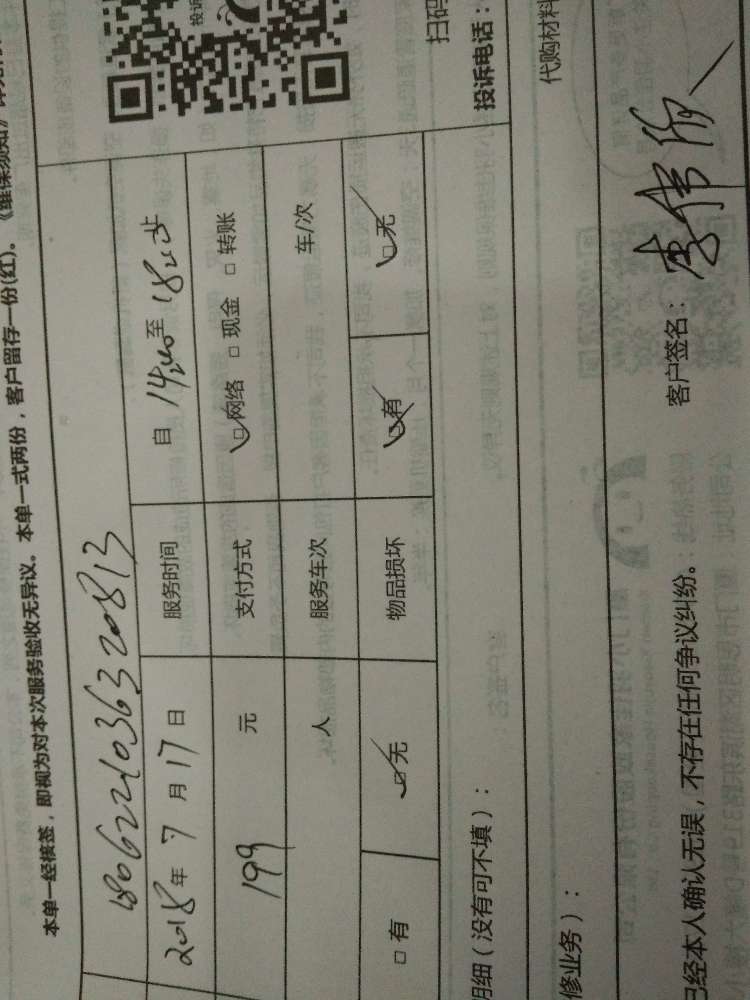 本单一经核签，即视为对本次服务验收无异议。本单一式两份，客户留存一份(红)。《维保须知》详见
投诉
18062210363220813
2018年7月17日 服务时间 自 14:40 至
199 元 支付方式 □网络 □现金 □转账
人 服务车次 车/次
□有 □无 物品损坏 □有 □无
扫码
投诉电话：
明细（没有可不填）：
代购材料
修业务）：
已经本人确认无误，不存在任何争议纠纷。
客户签名：李伟